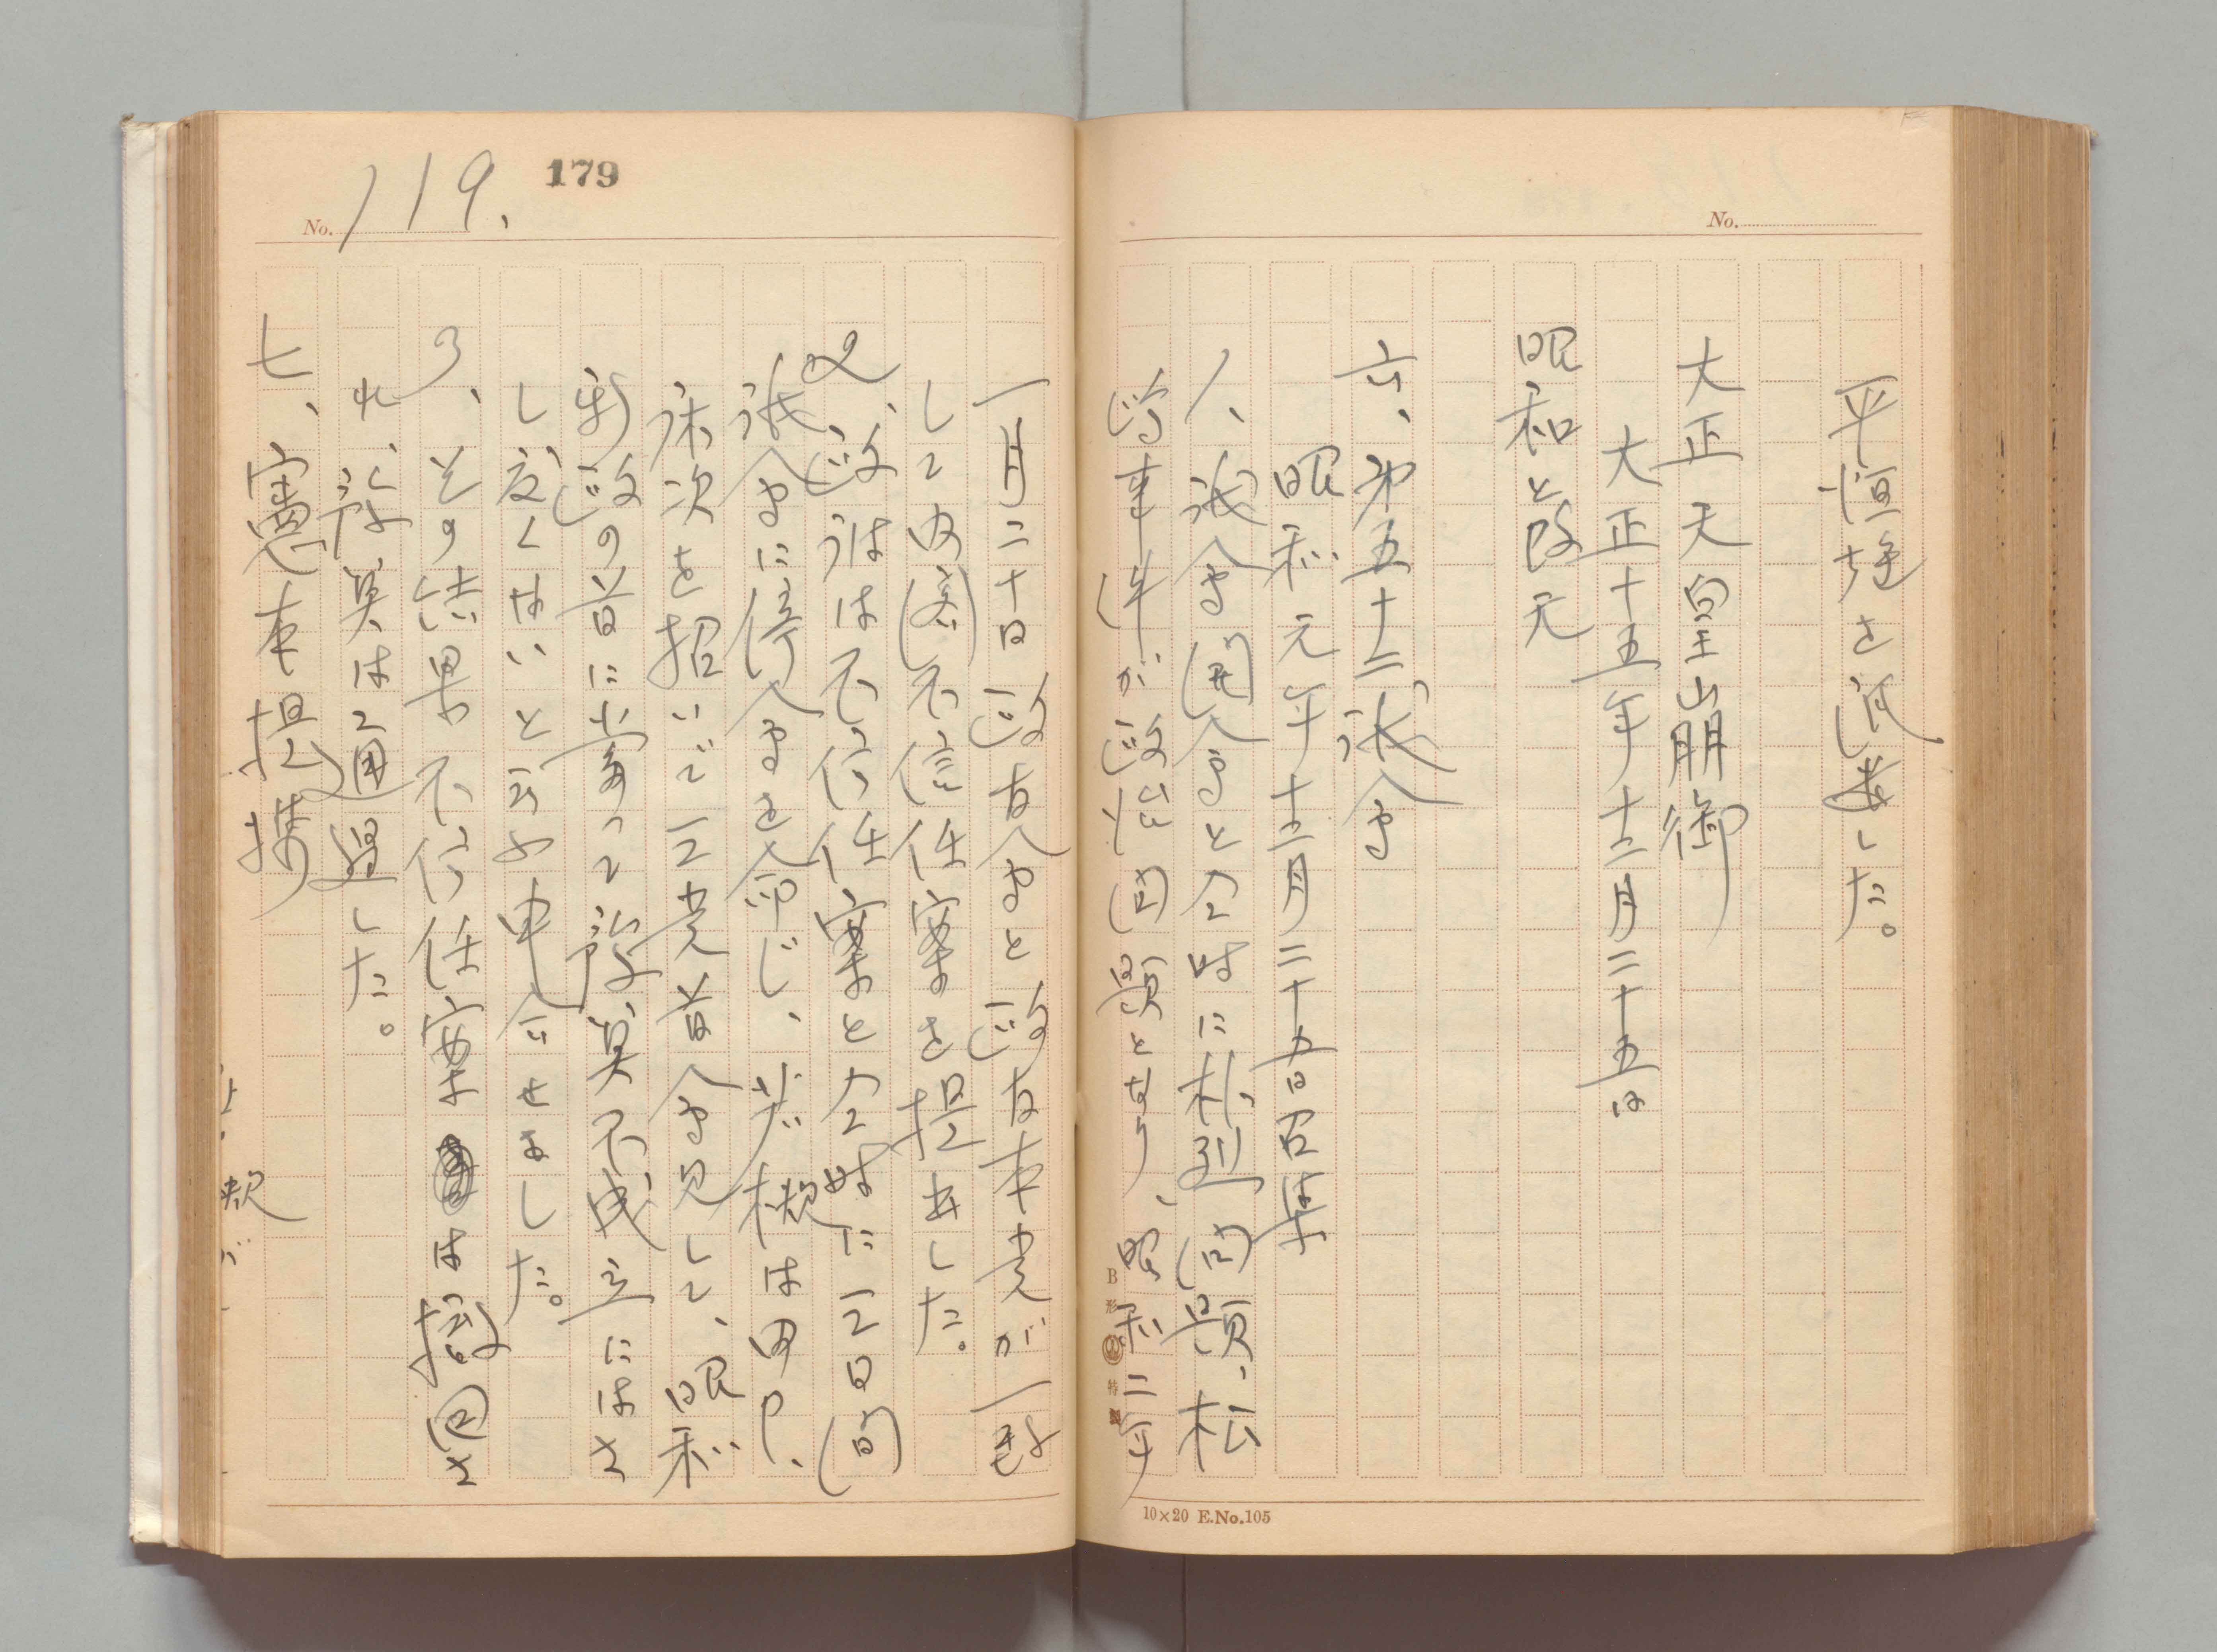 No.
平恒地を通過した。
大正天皇崩御
大正十五年十二月二十五日
昭和と改元
六、第五十二議会
昭和元年十二月二十五日召集
1、議会開会と同時に朴烈問題、松
島事件が政治問題となり、昭和二年
B形 特製
10×20 E.No.105
No. 119.
179
一月二十日政友会と政友本党が一致
して内閣不信任案を提出した。
2、政府は不信任案と同時に三日間
議会に停会を命じ、若槻は田中、
床次を招いで三党首会見して、昭和
新政の首に当って予算不成立にはさ
し度くないと云ふ申合せをした。
3、その結果不信任案は撤回さ
れ、予算は通過した。
七、憲本提携